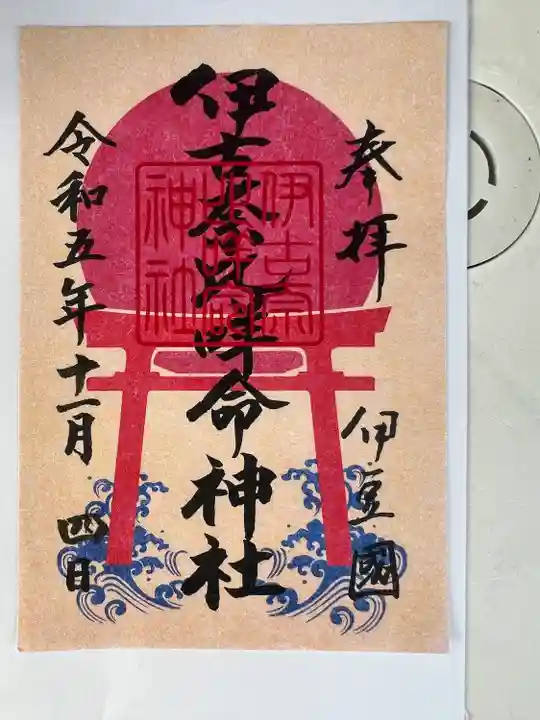 奉拝
伊豆國
伊古奈比咩命神社
伊古奈
神社
令和五年十一月四日